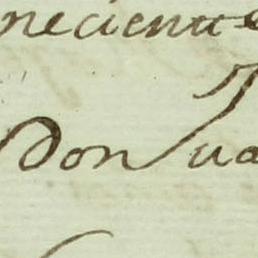 neciente
Don Jua